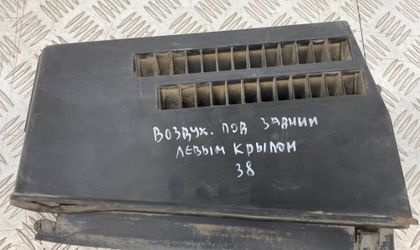 ВОЗДУХ. ПОД ЗАДНИМ
ЛЕВЫМ КРЫЛОМ
38